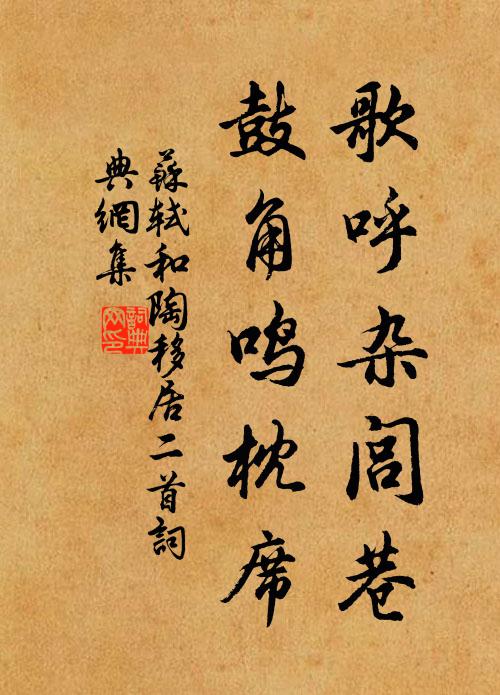 歌呼杂闾巷
鼓角鸣枕席
蘇軾和陶移居二首詞
典網集
詞典網印